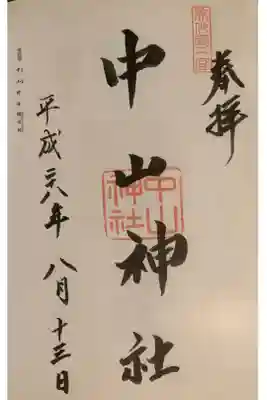 奉拝
中山神社
中山
神社
平成二八年八月十三日